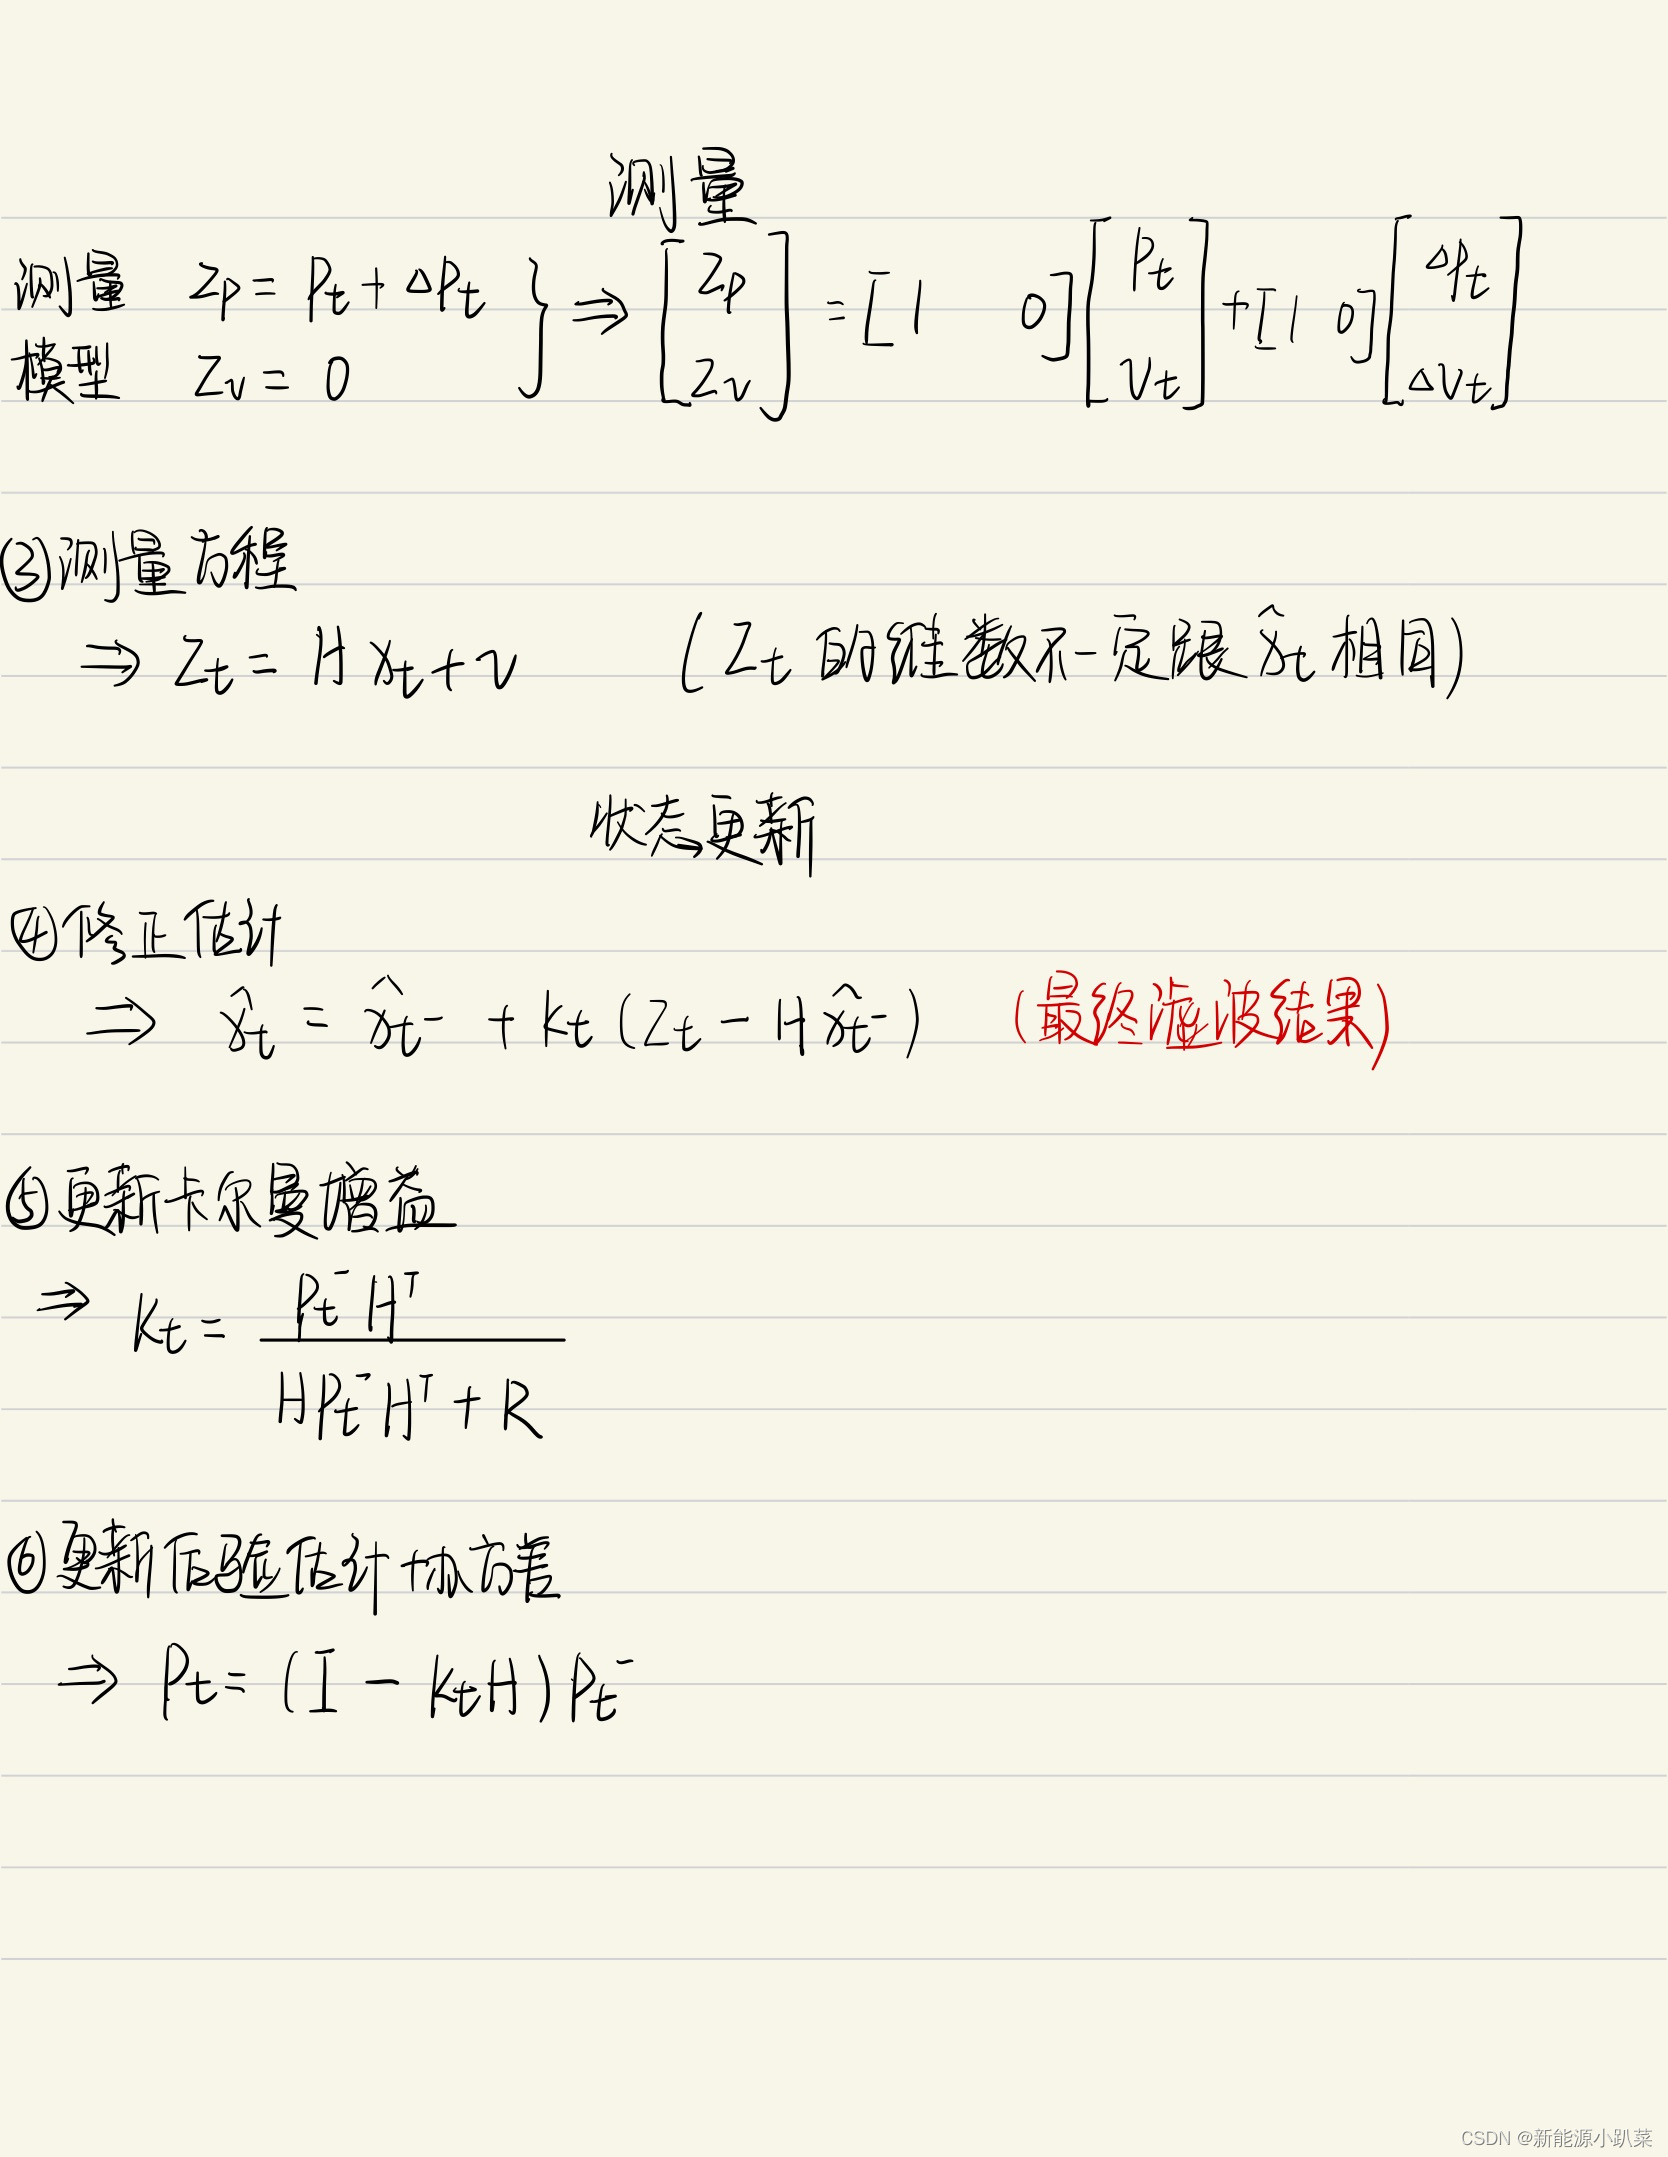 测量
测量 Zp = Pt + ΔPt } ⇒ [Zp Zv] = [1 0] [Pt Vt] + [1 0] [ΔPt ΔVt]
模型 Zv = 0
③测量方程
⇒ Zt = H xt + v (Zt 的维数不一定跟 x̂t 相同)
状态更新
④修正估计
⇒ x̂t = x̂t⁻ + kt (Zt − H x̂t⁻) (最终滤波结果)
⑤更新卡尔曼增益
⇒ kt = Pt⁻ Hᵀ / (H Pt⁻ Hᵀ + R)
⑥更新后验估计协方差
⇒ Pt = (I − kt H) Pt⁻
CSDN @新能源小趴菜